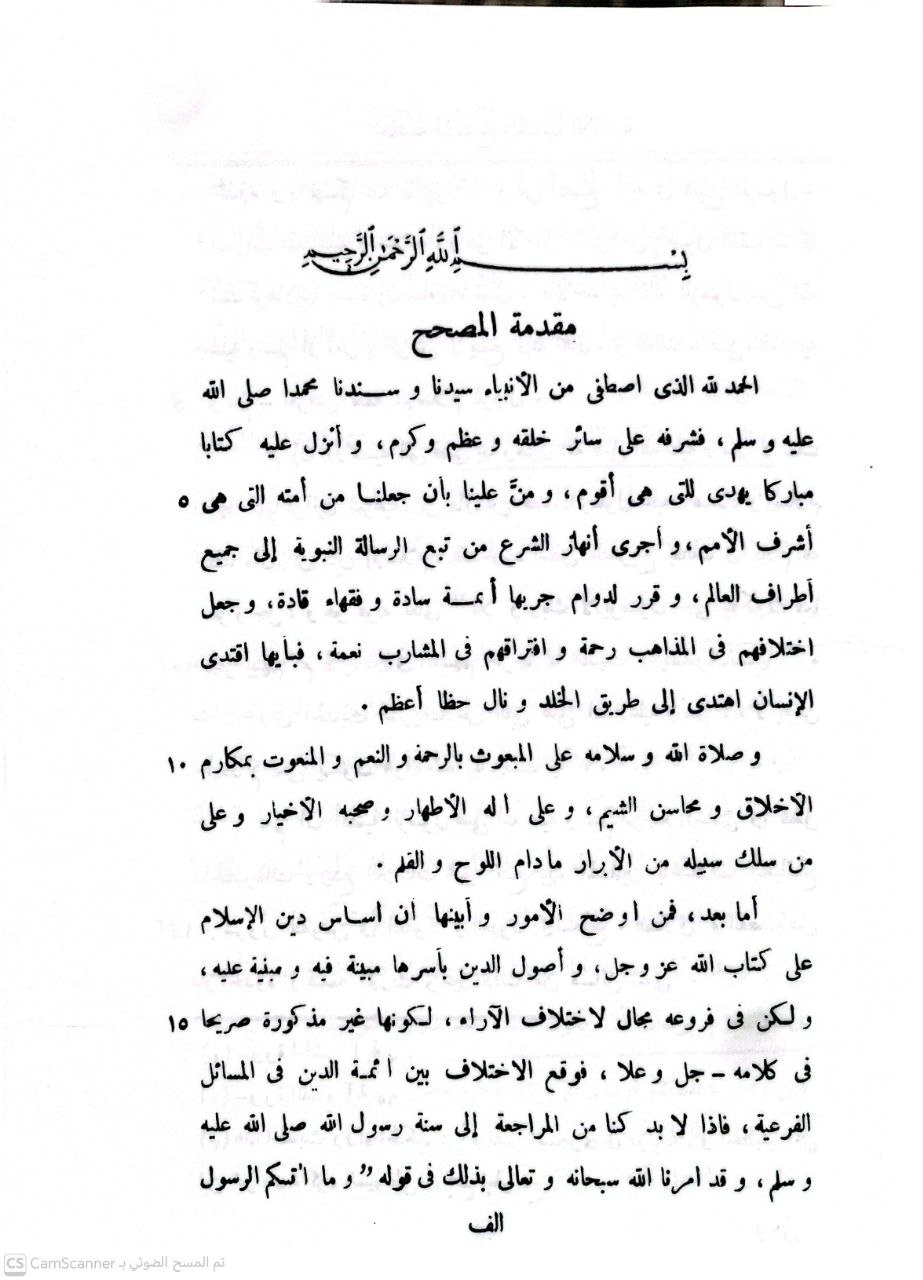 بسم الله الرحمن الرحيم
مقدمة المصحح
الحمد لله الذى اصطفى من الأنبياء سيدنا و سندنا محمدا صلى الله
عليه و سلم ، فشرفه على سائر خلقه و عظم وكرم ، و أنزل عليه كتابا
مباركا يهدى للتى هى أقوم ، و منَّ علينا بأن جعلنا من أمته التى هى ٥
أشرف الأمم ، و أجرى أنهاز الشرع من تبع الرسالة النبوية إلى جميع
أطراف العالم ، و قرر لدوام جربها أئمة سادة و فقهاء قادة ، و جعل
اختلافهم فى المذاهب رحمة و افتراقهم فى المشارب نعمة ، فبأيها اقتدى
الإنسان اهتدى إلى طريق الخلد و نال حظا أعظم .
و صلاة الله و سلامه على المبعوث بالرحمة و النعم و المنعوت بمكارم ١٠
الأخلاق و محاسن الشيم ، و على أله الأطهار و صحبه الأخيار و على
من سلك سبيله من الأبرار مادام اللوح و القلم .
أما بعد ، فمن أوضح الأمور و أبينها أن أساس دين الإسلام
على كتاب الله عز و جل ، و أصول الدين بأسرها مبينة فيه و مبنية عليه ،
و لكن فى فروعه مجال لاختلاف الآراء ، لكونها غير مذكورة صريحا ١٥
فى كلامه - جل و علا ، فوقع الاختلاف بين أئمة الدين فى المسائل
الفرعية ، فاذا لا بد كنا من المراجعة إلى سنة رسول الله صلى الله عليه
و سلم ، و قد أمرنا الله سبحانه و تعالى بذلك فى قوله " و ما اٰتٰىكم الرسول
الف
CS CamScanner تم المسح الضوئي بـ